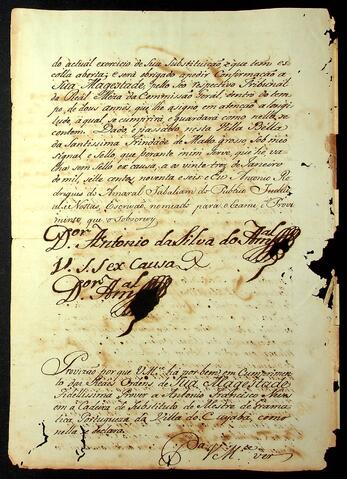 do actual exercicio de Sua Substituição, q que tem es-
colla aberta; e será obrigado apedir Confirmação a
Sua Magestade, pello seo respectivo Tribunal
da Real Meza da Commissão Geral dentro do tem-
po, de dous annos, que lhe asigno em atenção a longi-
tude, á qual se cumprirá, e guardará como nella se
contem. Dada, e passada nesta Villa Bella
da Santissima Trindade do Matto grosso, sob meo
signal, e Sello, que perante mim serve, que hé va-
lha sem Sello ex causa, a os vinte tres de Janeiro
de mil sete centos noventa e seis, e Eu Antonio Ro-
drigues do Amaral Tabaliam do Publico Judici-
al e Nottas, Escrivão, nomeado para o exame, e Provi-
mento, que o Sobscrevy
D.or Antonio da Silva do Am.al
V. S. S. ex Causa
D.or Am.al
Provizão por que V. M.ce há por bem em Cumprimen-
to das Reaes Ordens de Sua Magestade,
Fidellissima Prover a Antonio Francisco Neves
em a Cadeira de Substituto de Mestre de Grama-
tica Portugueza da Villa do Cuyabá, como
nella se declara.
Pa V. M.ce ver